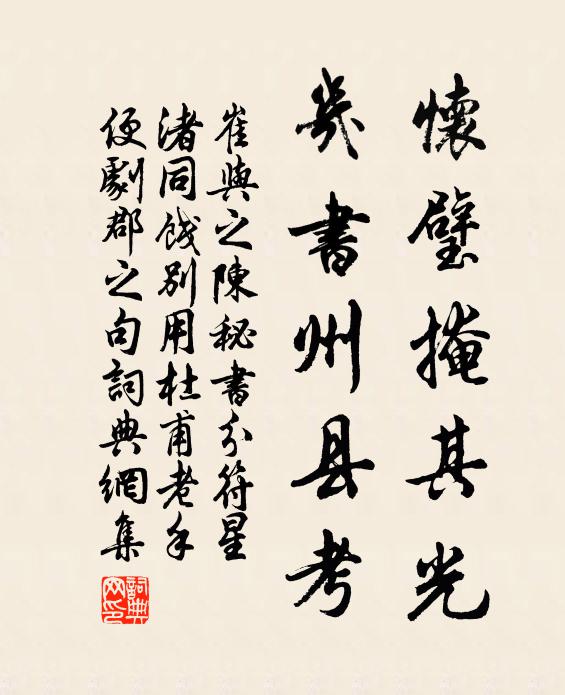 懷璧掩其光
幾書州县考
崔與之陳秘書分符星
渚同餞別用杜甫老手
便劇郡之句詞典網集
詞典网印